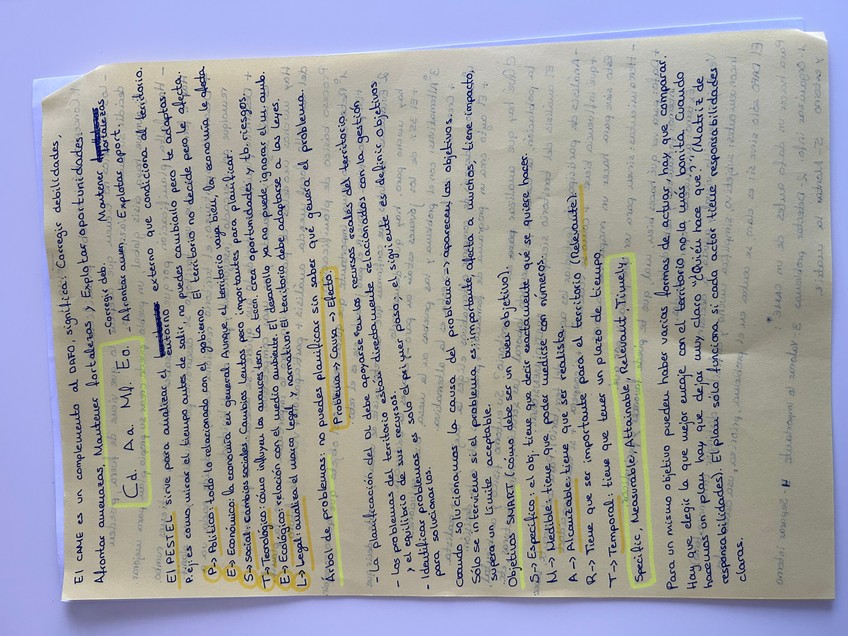 El CAME es un complemento al DAFO, significa: Corregir debilidades,
Afrontar amenazas, Mantener fortalezas y Explotar oportunidades.
Cd. Aa. Mf. Eo.
- Corregir deb. - Mantener fortalezas
- Afrontar amen. - Explotar oport.
El PESTEL sirve para analizar el entorno externo que condiciona al territorio.
P.ej: es como mirar el tiempo antes de salir, no puedes cambiarlo pero te adaptas.
P→ Político: todo lo relacionado con el gobierno. El territorio no decide pero le afecta.
E→ Económico: la economía en general. Aunque el territorio vaya bien, la economía le afecta
S→ Social: cambios sociales. Cambios lentos pero importantes para planificar.
T→ Tecnológico: cómo influyen los avances tecn. La tecn. crea oportunidades y tb. riesgos.
E→ Ecológico: relación con el medio ambiente. El desarrollo ya no puede ignorar el m. amb.
L→ Legal: analiza el marco legal y normativo. El territorio debe adaptarse a las leyes.
Árbol de problemas: no puedes planificar sin saber qué genera el problema.
Problema → Causa → Efecto
- La planificación del DL debe apoyarse en los recursos reales del territorio.
- Los problemas del territorio están directamente relacionados con la gestión
y el equilibrio de sus recursos.
- Identificar problemas es sólo el primer paso; el siguiente es definir objetivos
para solucionarlos.
Cuando solucionamos la causa del problema → aparecen los objetivos.
Sólo se interviene si el problema es importante, afecta a muchos, tiene impacto,
supera un límite aceptable.
Objetivos SMART (cómo debe ser un buen objetivo).
S→ Específico: el obj. tiene que decir exactamente qué se quiere hacer.
M→ Medible: tiene que poder medirse con números.
A→ Alcanzable: tiene que ser realista.
R→ Tiene que ser importante para el territorio (Relevante).
T→ Temporal: tiene que tener un plazo de tiempo.
Specific, Measurable, Attainable, Relevant, Timely.
Para un mismo objetivo pueden haber varias formas de actuar, hay que comparar.
Hay que elegir la que mejor encaje con el territorio no la más bonita. Cuando
hacemos un plan hay que dejar muy claro "¿Quién hace qué?" (Matriz de
responsabilidades). El plan sólo funciona si cada actor tiene responsabilidades
claras.